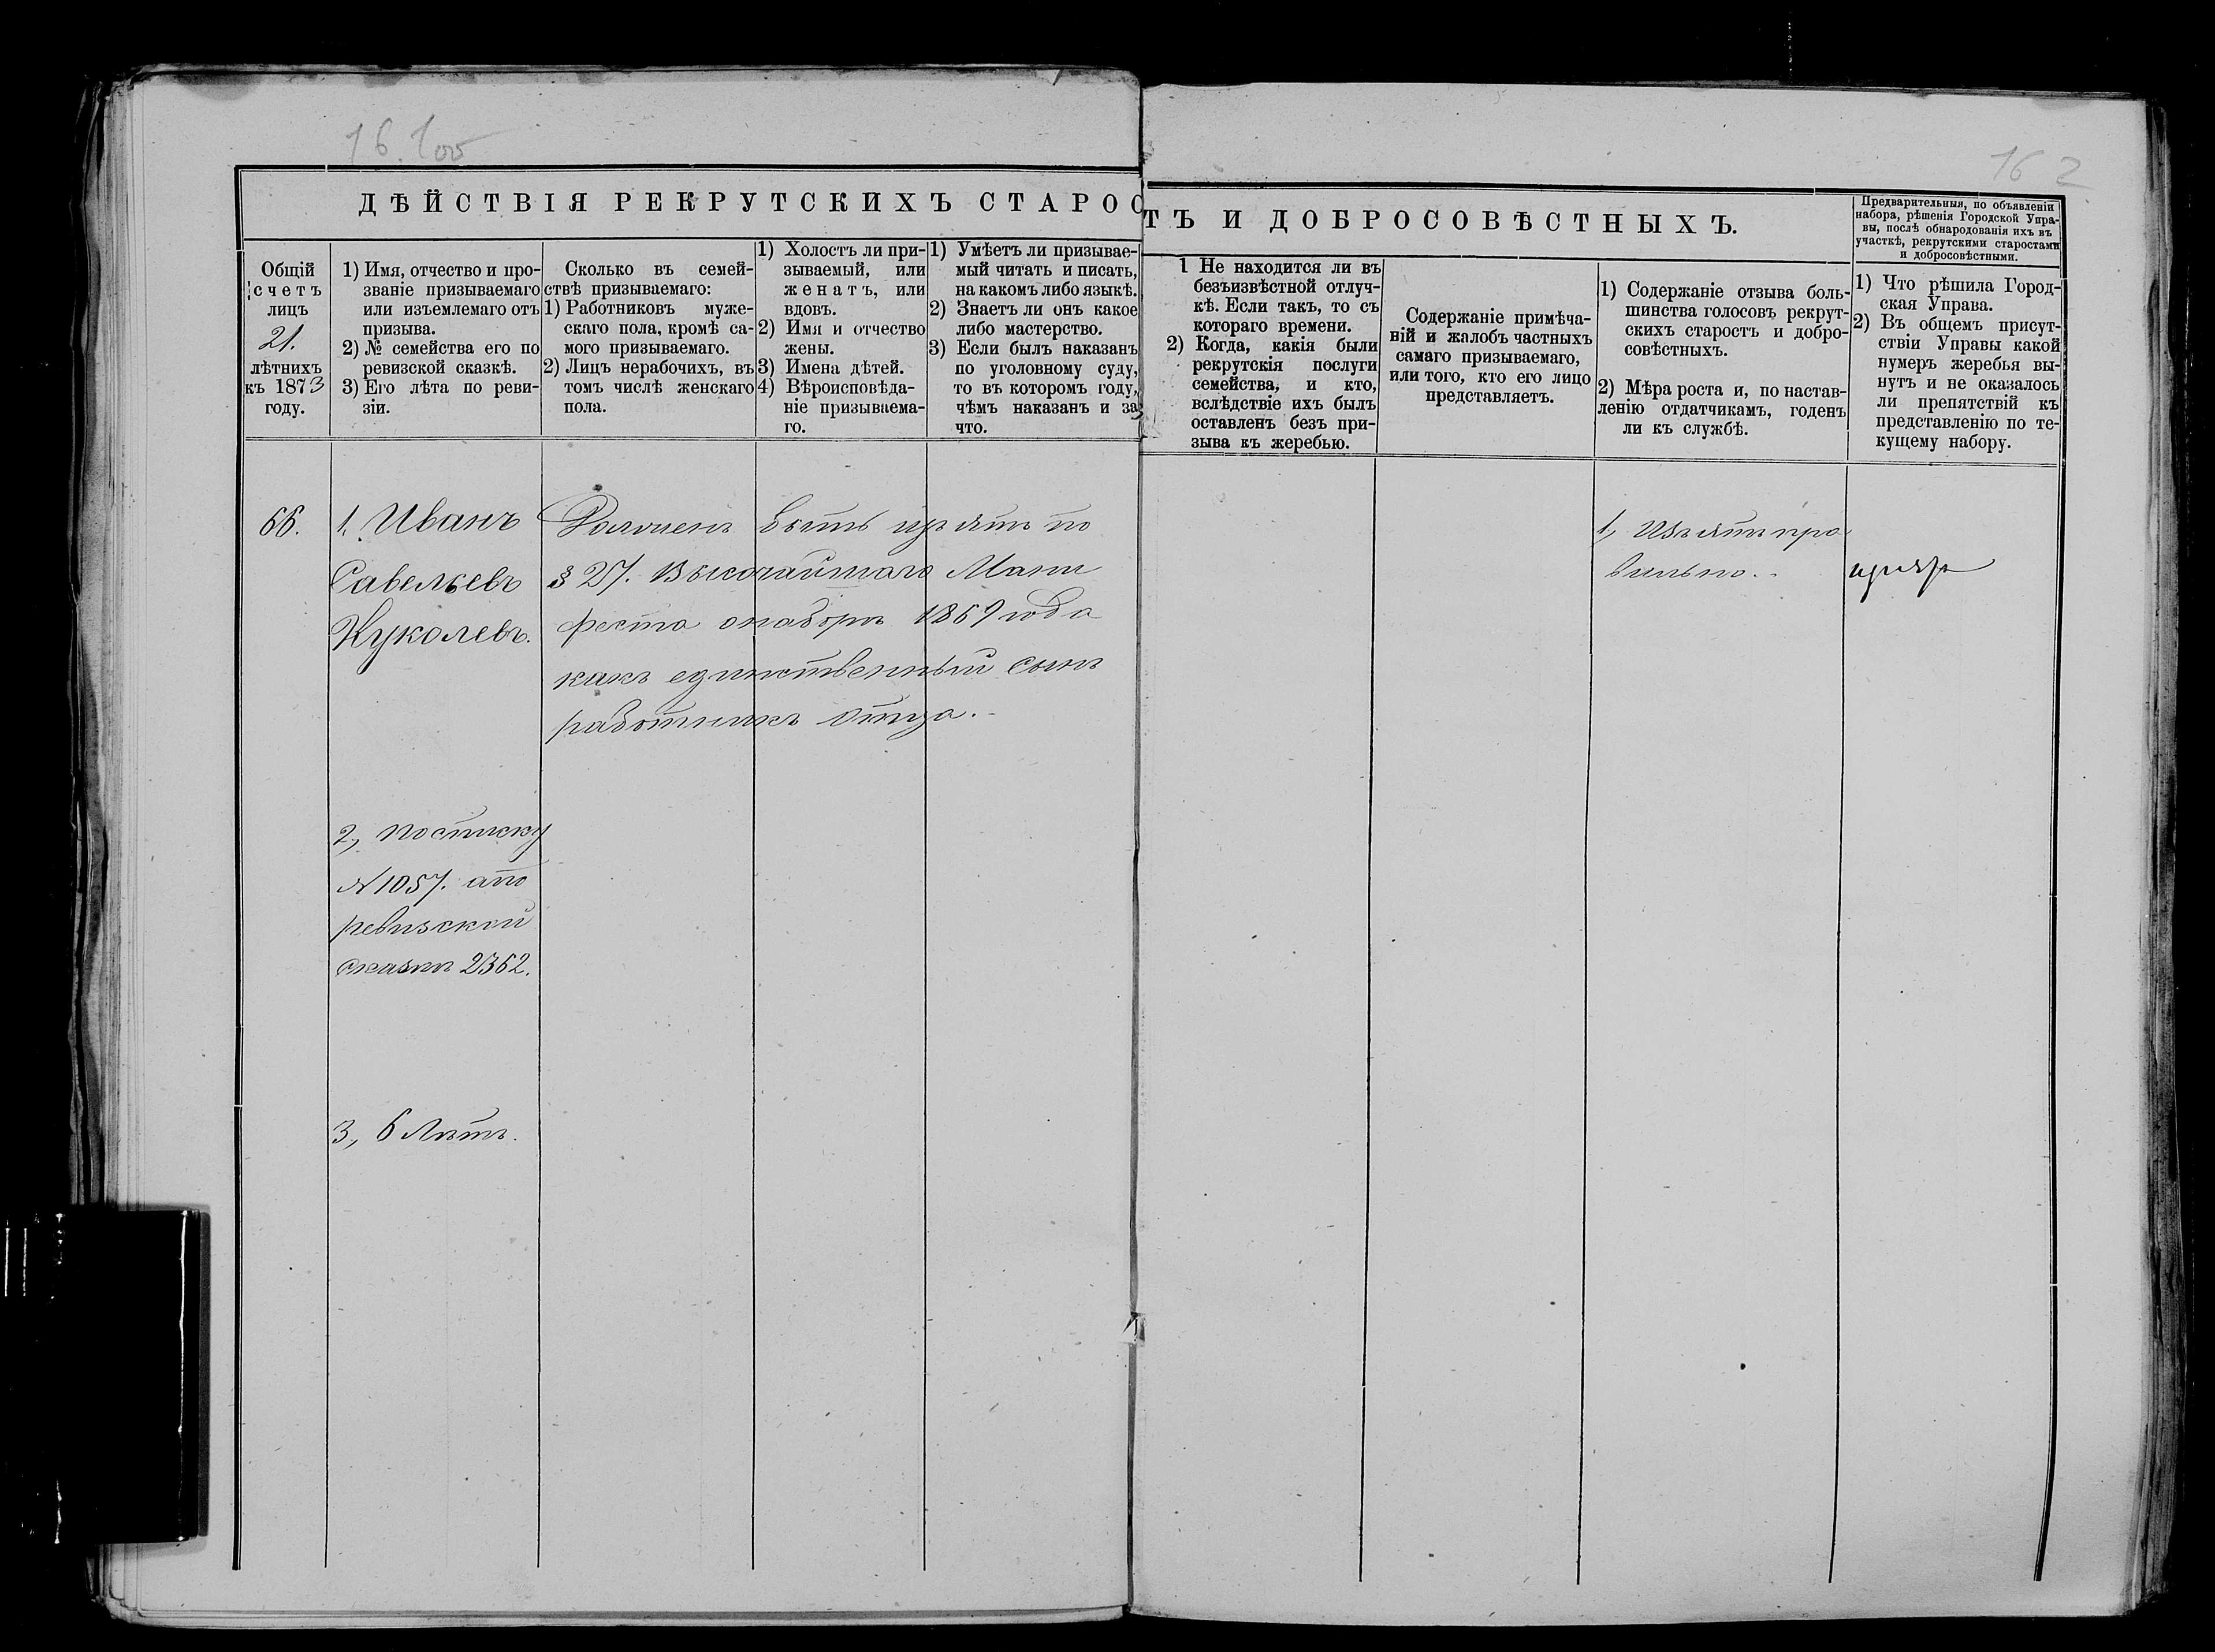 16.100
162
ДѢЙСТВІЯ РЕКРУТСКИХЪ СТАРОС
ТЪ И ДОБРОСОВѢСТНЫХЪ.
Предварительныя, по объявленіи
набора, рѣшенія Городской Упра-
вы, послѣ обнародованія ихъ въ
участкѣ, рекрутскими старостами
и добросовѣстными.
Общій
счетъ
лицъ
21.
лѣтнихъ
къ 1873
году.
1) Имя, отчество и про-
званіе призываемаго
или изъемлемаго отъ
призыва.
2) № семейства его по
ревизской сказкѣ.
3) Его лѣта по реви-
зіи.
Сколько въ семей-
ствѣ призываемаго:
1) Работниковъ муже-
скаго пола, кромѣ са-
мого призываемаго.
2) Лицъ нерабочихъ, въ
томъ числѣ женскаго
пола.
1) Холостъ ли при-
зываемый, или
женатъ, или
вдовъ.
2) Имя и отчество
жены.
3) Имена дѣтей.
4) Вѣроисповѣда-
ніе призываема-
го.
1) Умѣетъ ли призывае-
мый читать и писать,
на какомъ либо языкѣ.
2) Знаетъ ли онъ какое
либо мастерство.
3) Если былъ наказанъ
по уголовному суду,
то въ которомъ году,
чѣмъ наказанъ и за
что.
1 Не находится ли въ
безъизвѣстной отлуч-
кѣ. Если такъ, то съ
котораго времени.
2) Когда, какія были
рекрутскія послуги
семейства, и кто,
вслѣдствіе ихъ былъ
оставленъ безъ при-
зыва къ жеребью.
Содержаніе примѣча-
ній и жалобъ частныхъ
самаго призываемаго,
или того, кто его лицо
представляетъ.
1) Содержаніе отзыва боль-
шинства голосовъ рекрут-
скихъ старостъ и добро-
совѣстныхъ.
2) Мѣра роста и, по настав-
ленію отдатчикамъ, годенъ
ли къ службѣ.
1) Что рѣшила Город-
ская Управа.
2) Въ общемъ присут-
ствіи Управы какой
нумеръ жеребья вы-
нутъ и не оказалось
ли препятствій къ
представленію по те-
кущему набору.
66.
1. Иванъ
Савельевъ
Куколевъ.
Долженъ быть изъятъ по
§ 27. Высочайшаго Мани
феста о наборѣ 1869 года
какъ единственный сынъ
работникъ отца.-
1, Изъятъ пра
вильно.-
2, по списку
№ 1057. а по
ревизской
сказкѣ 2362.
3, 6 лѣтъ.